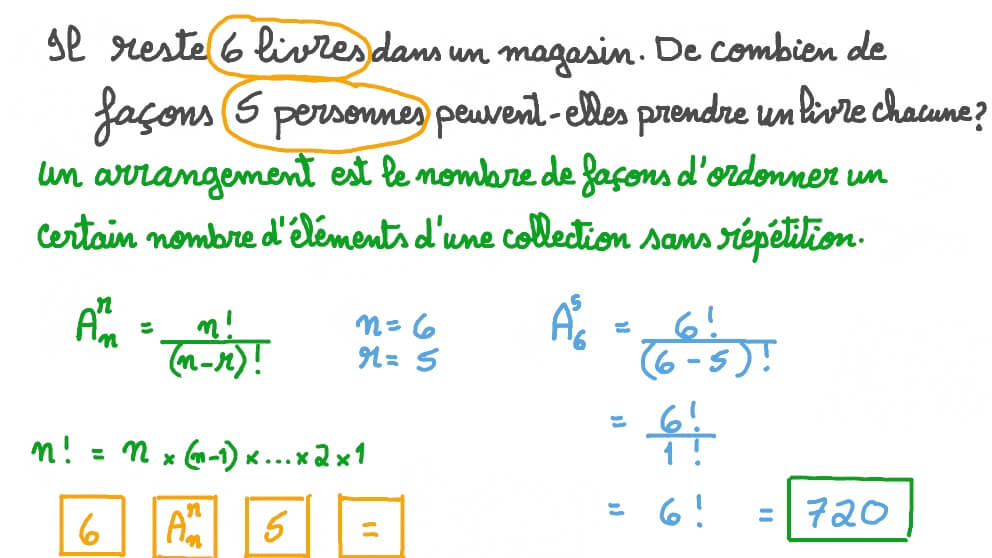 Il reste 6 livres dans un magasin. De combien de
façons 5 personnes peuvent-elles prendre un livre chacune?
un arrangement est le nombre de façons d'ordonner un
certain nombre d'éléments d'une collection sans répétition.
Aₙʳ = n! / (n-r)!
n = 6
r = 5
A₆⁵ = 6! / (6-5)!
= 6! / 1!
n! = n × (n-1) × ... × 2 × 1
= 6! = 720
6 Aₙʳ 5 =